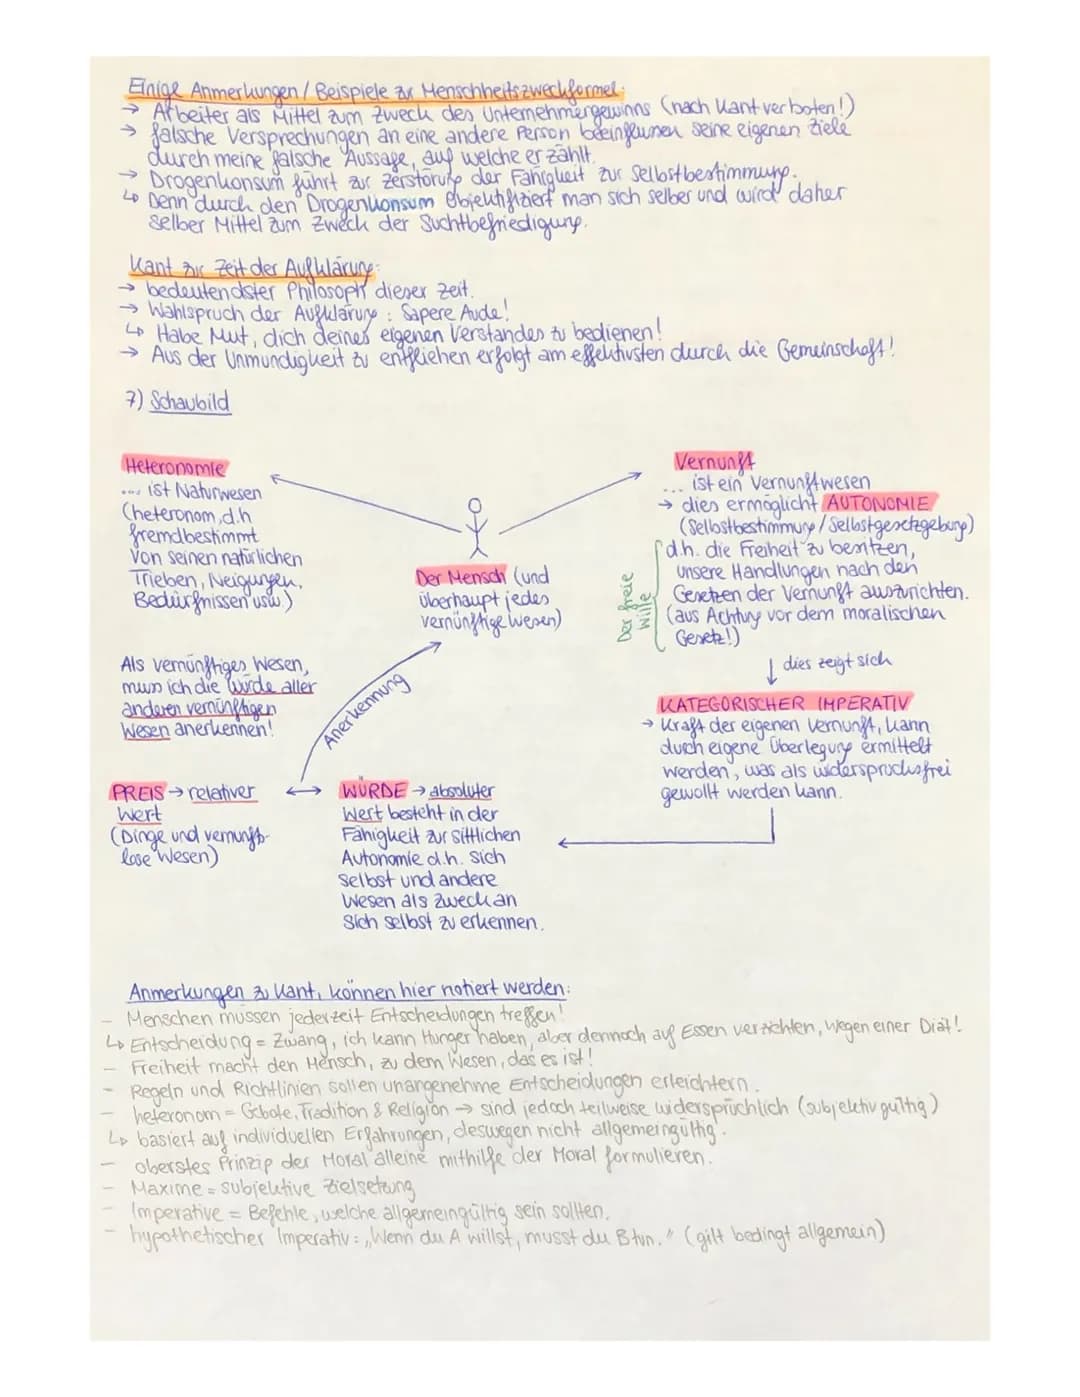 Einige Anmerkungen / Beispiele zur Menschheitszweckformel:
→ Arbeiter als Mittel zum Zweck des Unternehmergewinns (nach Kant verboten!)
→ falsche Versprechungen an eine andere Person beeinflussen seine eigenen Ziele
durch meine falsche Aussage, auf welche er zählt.
→ Drogenkonsum führt zur Zerstörung der Fähigkeit zur Selbstbestimmung.
↳ Denn durch den Drogenkonsum objektifiziert man sich selber und wird daher
selber Mittel zum Zweck der Suchtbefriedigung.
Kant zur Zeit der Aufklärung:
→ bedeutendster Philosoph dieser Zeit.
→ Wahlspruch der Aufklärung: Sapere Aude!
↳ Habe Mut, dich deines eigenen Verstandes zu bedienen!
→ Aus der Unmündigkeit zu entfliehen erfolgt am effektivsten durch die Gemeinschaft!
7) Schaubild
Heteronomie
... ist Naturwesen
(heteronom, d.h
fremdbestimmt
von seinen natürlichen
Trieben, Neigungen,
Bedürfnissen usw.)
Der Mensch (und
überhaupt jedes
vernünftige Wesen)
Vernunft
... ist ein Vernunftwesen
→ dies ermöglicht AUTONOMIE
(Selbstbestimmung / Selbstgesetzgebung)
d.h. die Freiheit zu besitzen,
unsere Handlungen nach den
Gesetzen der Vernunft auszurichten.
(aus Achtung vor dem moralischen
Gesetz!)
Der freie
Wille
↓ dies zeigt sich
KATEGORISCHER IMPERATIV
→ Kraft der eigenen Vernunft, kann
durch eigene Überlegung ermittelt
werden, was als widerspruchsfrei
gewollt werden kann.
Als vernünftiges Wesen,
muss ich die Würde aller
anderen vernünftigen
Wesen anerkennen!
Anerkennung
PREIS → relativer
Wert
(Dinge und vernunft-
lose Wesen)
↔
WÜRDE → absoluter
Wert besteht in der
Fähigkeit zur sittlichen
Autonomie d.h. sich
selbst und andere
Wesen als Zweck an
sich selbst zu erkennen.
Anmerkungen zu Kant, können hier notiert werden:
- Menschen müssen jederzeit Entscheidungen treffen!
↳ Entscheidung = Zwang, ich kann Hunger haben, aber dennoch auf Essen verzichten, wegen einer Diät!
- Freiheit macht den Mensch, zu dem Wesen, das es ist!
- Regeln und Richtlinien sollen unangenehme Entscheidungen erleichtern.
- heteronom = Gebote, Tradition & Religion → sind jedoch teilweise widersprüchlich (subjektiv gültig)
↳ basiert auf individuellen Erfahrungen, deswegen nicht allgemeingültig.
- oberstes Prinzip der Moral alleine mithilfe der Moral formulieren.
- Maxime = subjektive Zielsetzung
- Imperative = Befehle, welche allgemeingültig sein sollten.
- hypothetischer Imperativ: „Wenn du A willst, musst du B tun." (gilt bedingt allgemein)